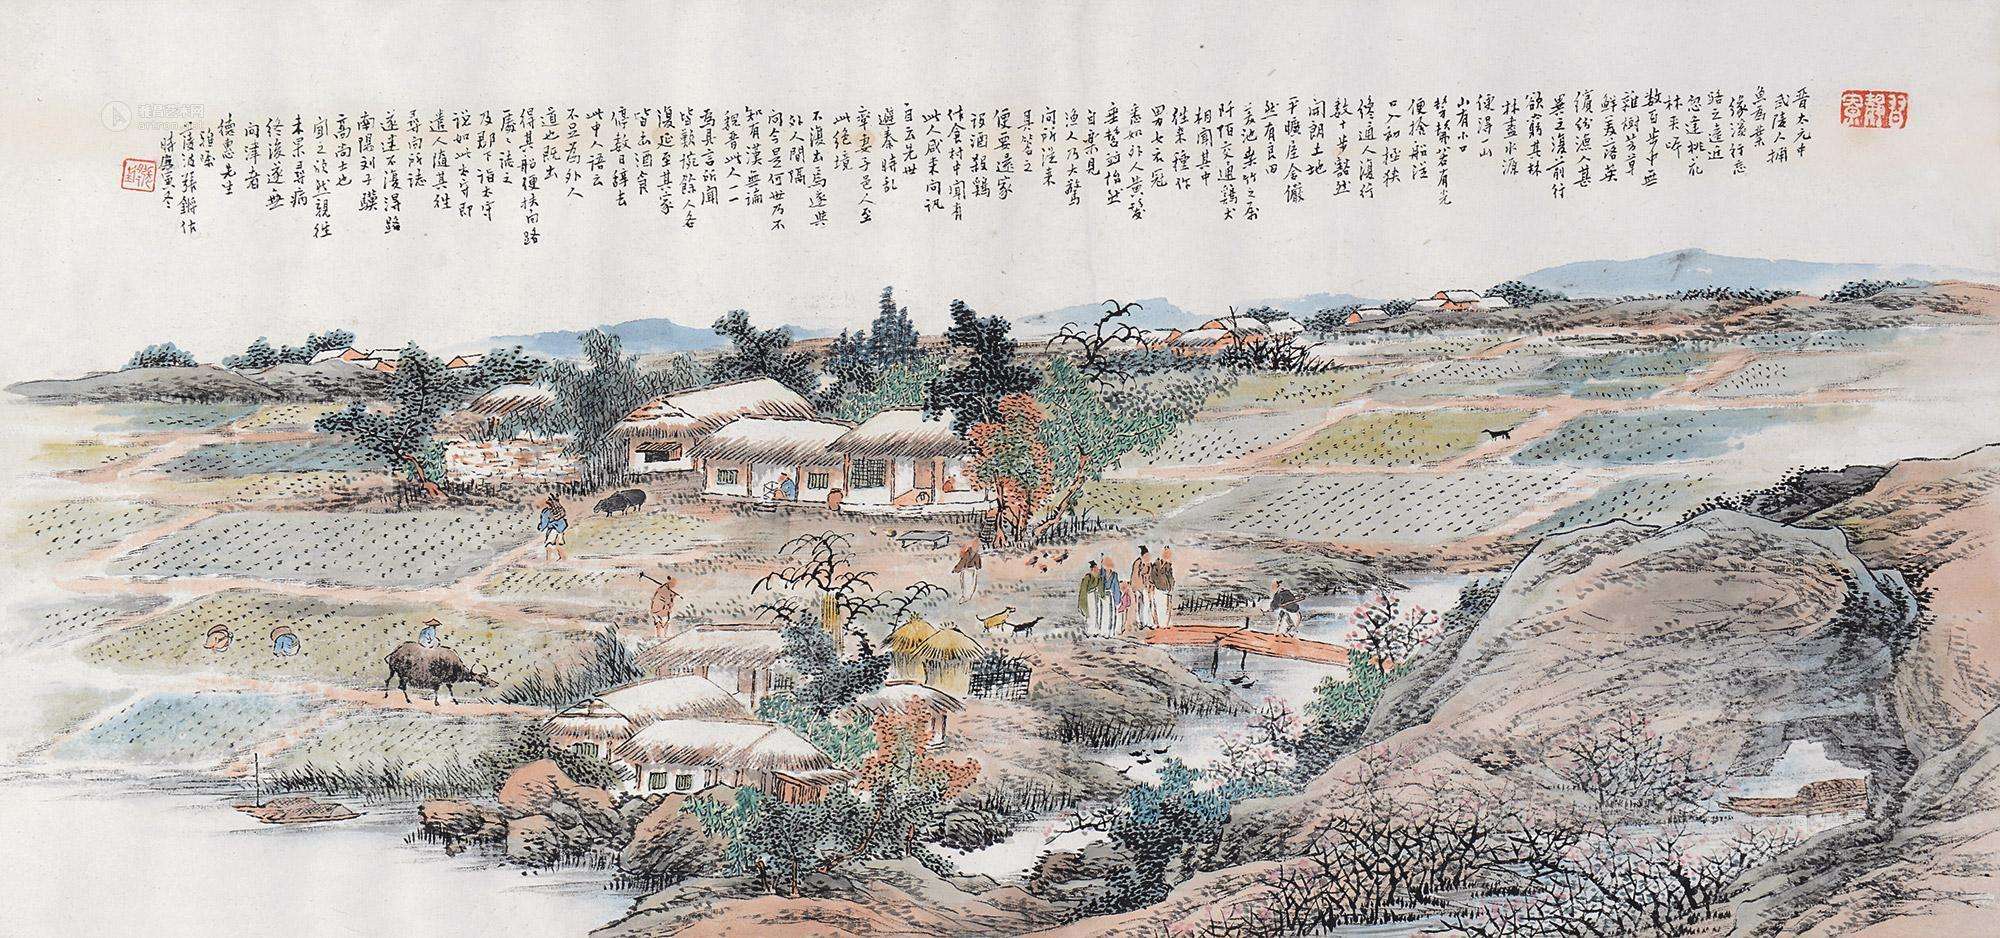 晋太元中
武陵人捕
魚為業
緣溪行忘
路之遠近
忽逢桃花
林夹岸
数百步中無
雜樹芳草
鮮美落英
繽紛漁人甚
異之復前行
欲窮其林
林盡水源
便得一山
山有小口
髣髴若有光
便捨船從
口入初極狹
纔通人復行
数十步豁然
開朗土地
平曠屋舍儼
然有良田
美池桑竹之屬
阡陌交通鷄犬
相聞其中
往来種作
男女衣冠
悉如外人黄髮
垂髫並怡然
自樂見
漁人乃大驚
問所從来
具答之
便要還家
設酒殺鷄
作食村中聞有
此人咸来問訊
自云先世
避秦時亂
率妻子邑人至
此绝境
不復出焉遂與
外人間隔
問今是何世乃不
知有漢無論
魏晋此人一一
為具言所聞
皆歎惋餘人各
復延至其家
皆出酒食
停数日辭去
此中人語云
不足為外人
道也既出
得其船便扶向路
處々誌之
及郡下詣太守
說如此太守即
遣人隨其往
尋向所誌
遂迷不復得路
南陽刘子驥
高尚士也
聞之欣然親往
未果尋病
終後遂無
問津者
德惠先生
雅屬
張鏘作
時庚寅冬
雅昌艺术网